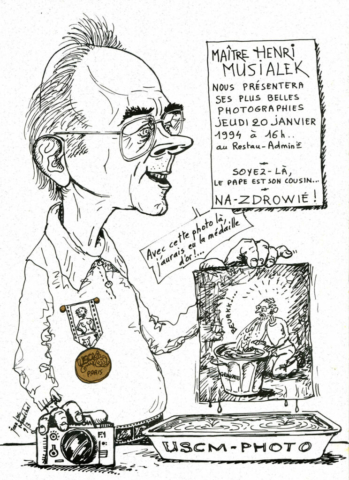 MAÎTRE HENRI
MUSIALEK
NOUS PRÉSENTERA
SES PLUS BELLES
PHOTOGRAPHIES
JEUDI 20 JANVIER
1994 à 16h..
au Restau-Admin!
SOYEZ-LÀ,
LE PAPE EST SON COUSIN...
NA-ZDROWIÉ!
Avec cette photo là
j'aurais eu la médaille
d'or!...
USCM
PARIS
USCM-PHOTO